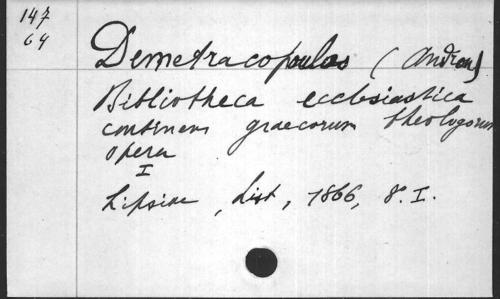 147
64
Demetracopoulos (Andron)
Bibliotheca ecclesiastica
continens graecorum theologorum
opera
I
Lipsiae, List, 1866, 8°. I.